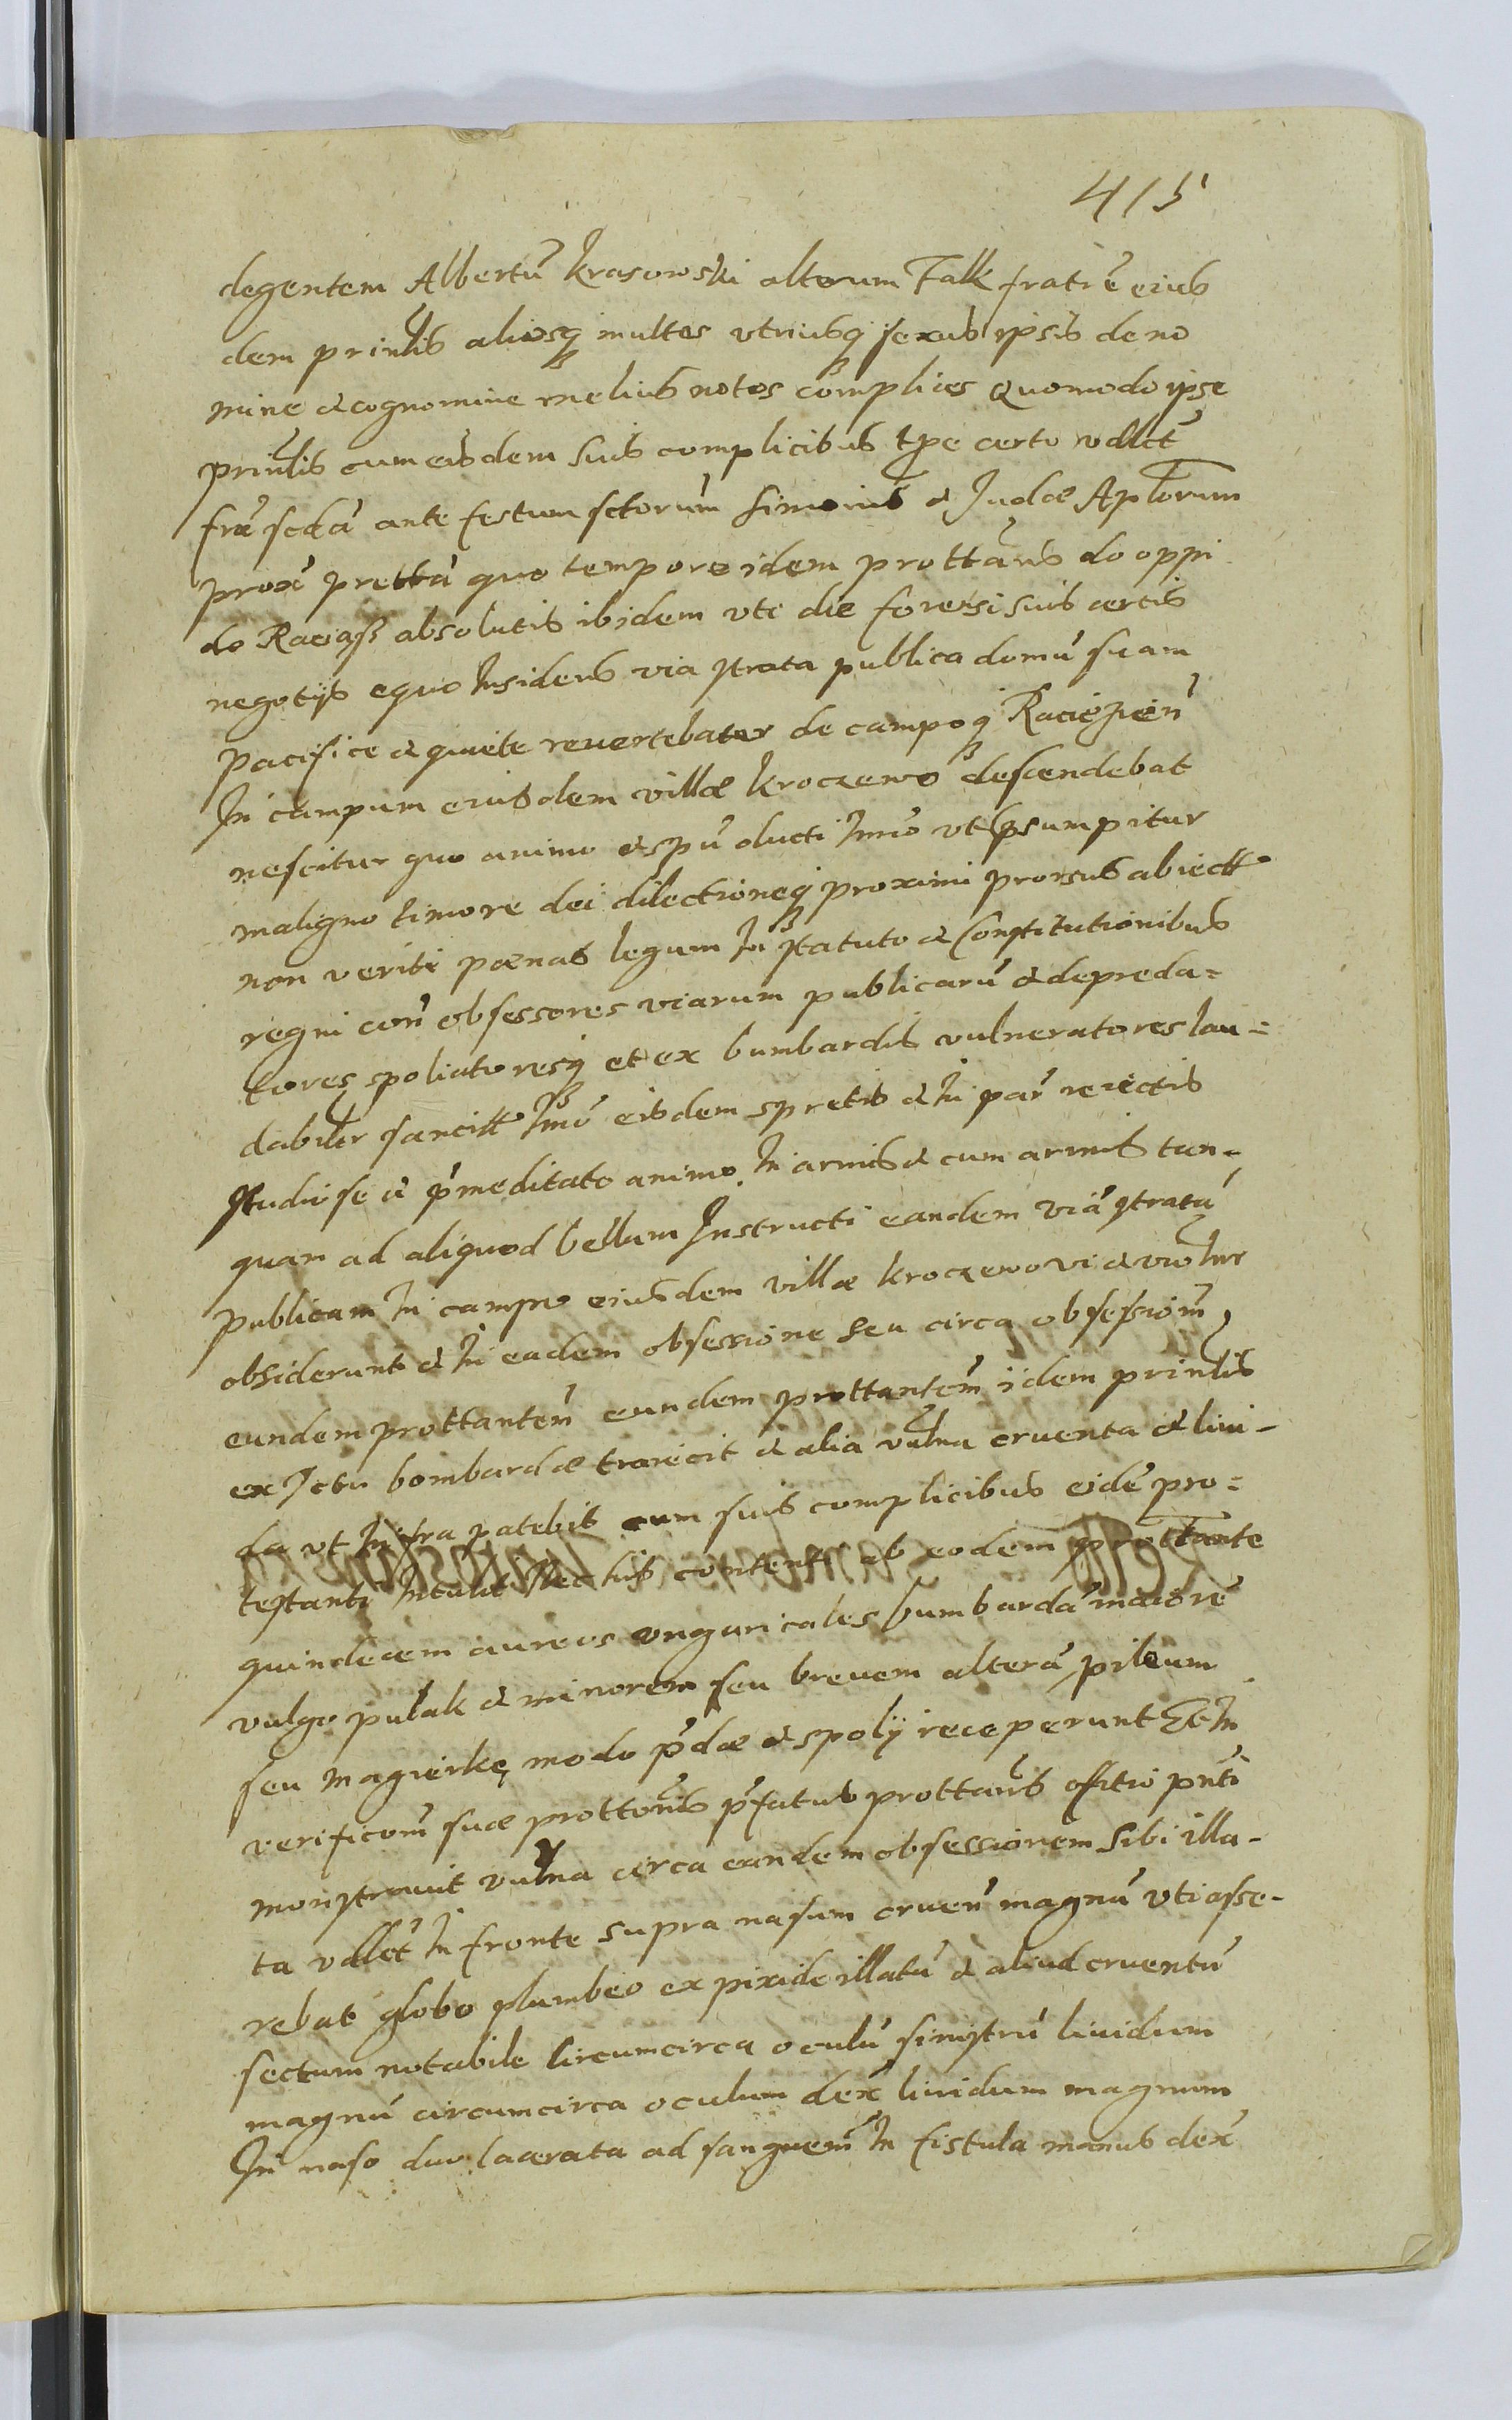 415
degentem Albertũ Krasowski alterum Falk fratrẽ eius
dem prinlis aliosq multos vtriusq sexus ipsis de no
mine et cognomine melius notos complices Quomodo ipse
prinlis cum eisdem suis complicibus tpe certo vdlct
fra scda ante festum sctorum Simonis et Judæ Aplorum
prox prætta quo tempore idem prottans do oppi
do Raciąsz absolutis ibidem vti die forensi suis certis
negotijs equo Insidens via strata publica domũ suam
pacifice et quiete reuertebatur de campoq Raciążień
In campum eiusdem villæ Kroczewo descendebat
nescitur quo animo et spũ ducti Imo vt præsumpitur
maligno timore dei dilectioneq proximi prorsus abiectt
non veriti pœnas legum In statuto et Constitutionibus
regni con obsessores viarum publicarũ et depreda=
tores spoliatoresq et ex bumbardis vulneratores lau=
dabilir sancitt Imo eisdem spretis et In par reiectis
studiose et pmeditato animo In armis et cum armis tan=
quam ad aliquod bellum Instructi eandem viã stratã
publicam In campo eiusdem villæ Kroczewo vi et violnr
obsiderunt et In eadem obsessione seu circa obsessiom
eundem prottantem eundem prottantem idem prinlis
ex Ictu bombardæ traiecit et alia vulna cruenta et liui-
da vt Infra patebit cum suis complicibus eidẽ pro=
testanti Intulit Nec his contenti ab eodem prottante
quindecem aureos vngaricales bumbardã maiorẽ
vulgo pulak et minorem seu breuem alterã pileum
seu magierkę modo pdæ et spolij receperunt Et In
verificom suæ prottonis pfatus prottans offitio pnti
monstrauit vulna circa eandem obsessionem sibi illa-
ta vdlct In fronte supra nasum cruen magnũ vti asse-
rebat globo plumbeo ex pixide illatũ et aliud cruentũ
sectum notabile circumcirca oculũ sinistrũ liuidum
magnũ circumcirca oculum dex liuidum magnum
In naso duo lacerata ad sanguem In fistula manus dex